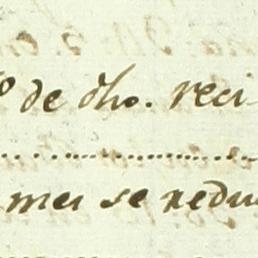 de dho. reci
mes se redu